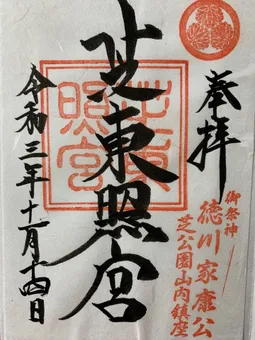 奉拝
御祭神
徳川家康公
芝公園山内鎮座
芝東照宮
芝東照宮
令和三年十一月十四日